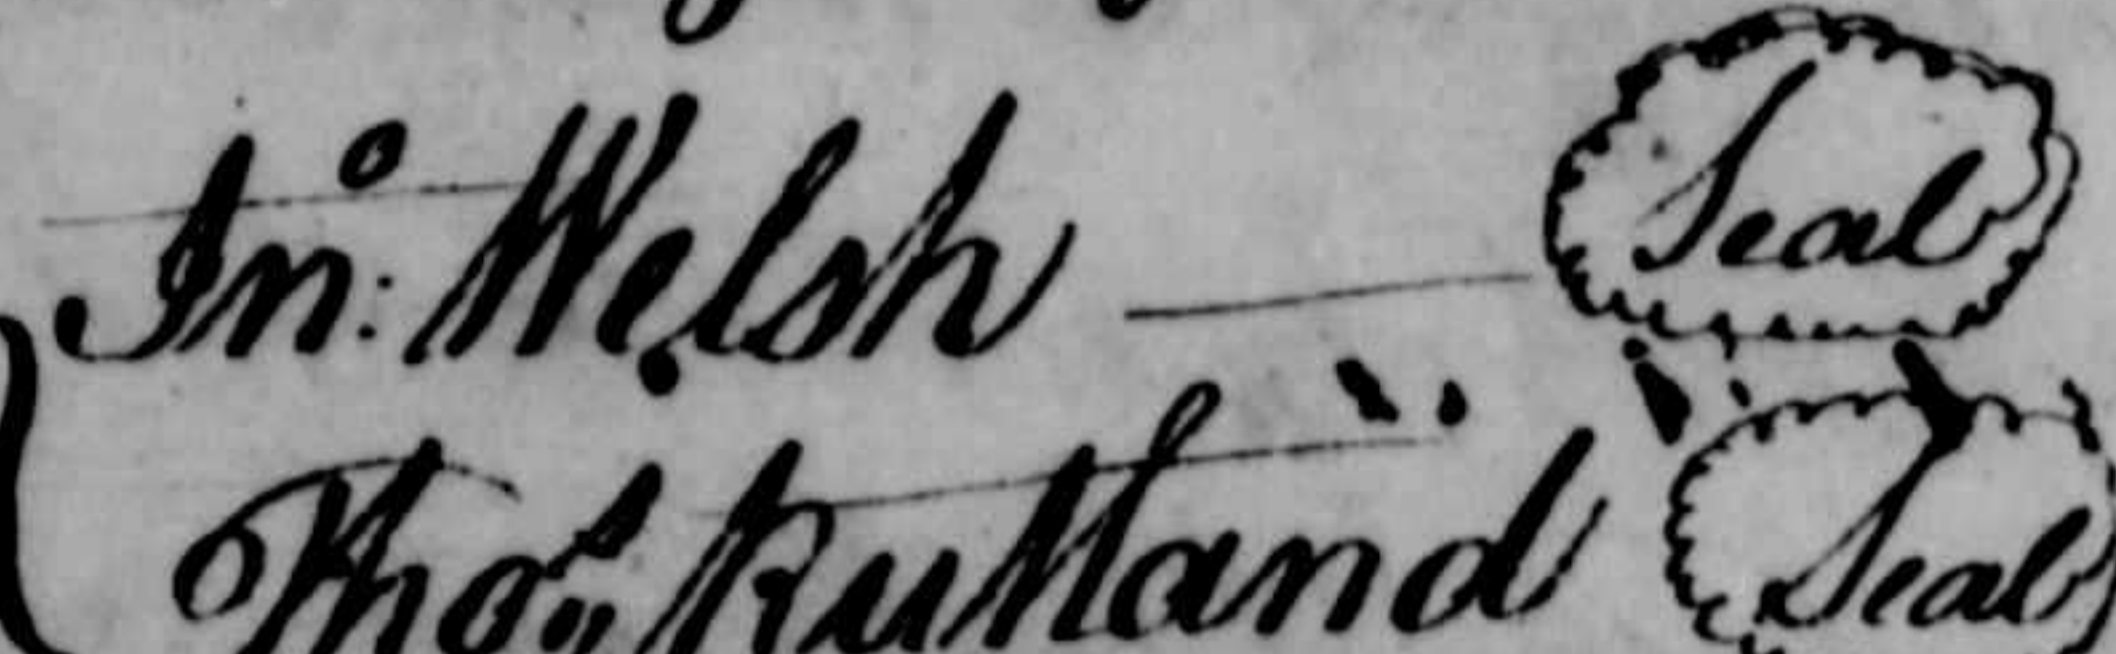 Jnº: Welsh — Seal
Thoˢ Rutland Seal